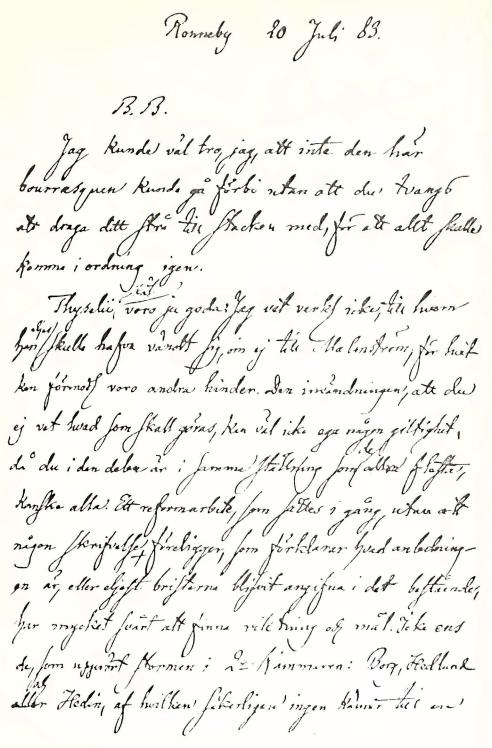 Ronneby 20 Juli 83.
B. B.
Jag kunde väl tro, jag, att inte den här
bourrasquen kunde gå förbi utan att du tvangs
att draga ditt strå till stacken med, för att allt skulle
komma i ordning igen.
Thyselii, skäl voro ju goda: Jag vet verkl icke, till hvem
han eljest skulle hafva vändt sig, om ej till Malmström, för hvil-
ken förmodl voro andra hinder. Den invändningen, att du
ej vet hvad som skall göras, kan väl icke ega någon giltighet,
då du i den delen är i samma ställning som de flesta,
kanske alla. Ett reformarbete, som sättes i gång, utan att
någon skrifvelse föreligger, som förklarar hvad anledning-
en är, eller eljest bristerna blifvit angifna i det bestående,
har mycket svårt att finna riktning och mål. Icke ens
de, som uppvört stormen i 2a Kammaren: Borg, Hedlund
eller Hedin, af hvilken säkerligen ingen känner till en